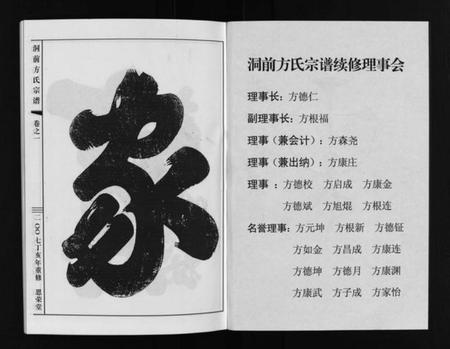 洞前方氏宗谱
卷之一
二〇〇七丁亥年重修 思荣堂
家
洞前方氏宗谱续修理事会
理事长：方德仁
副理事长：方根福
理事（兼会计）：方森尧
理事（兼出纳）：方康庄
理事 ：方德校 方启成 方康金
方德斌 方旭焜 方根连
名誉理事：方元坤 方根新 方德钲
方如金 方昌成 方康连
方德坤 方德月 方康渊
方康武 方子成 方家怡